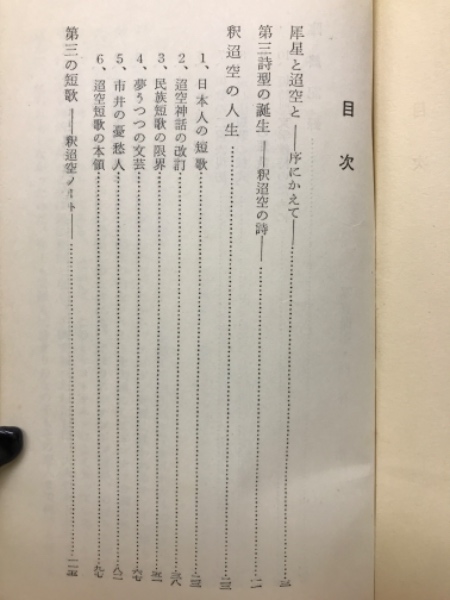 目次
犀星と迢空と――序にかえて――……三
第三詩型の誕生――釈迢空の詩――……一一
釈迢空の人生……二三
1、日本人の短歌……二三
2、迢空神話の改訂……三八
3、民族短歌の限界……
4、夢うつつの文芸……六七
5、市井の憂愁人……八二
6、迢空短歌の本領……九七
第三の短歌――釈迢空